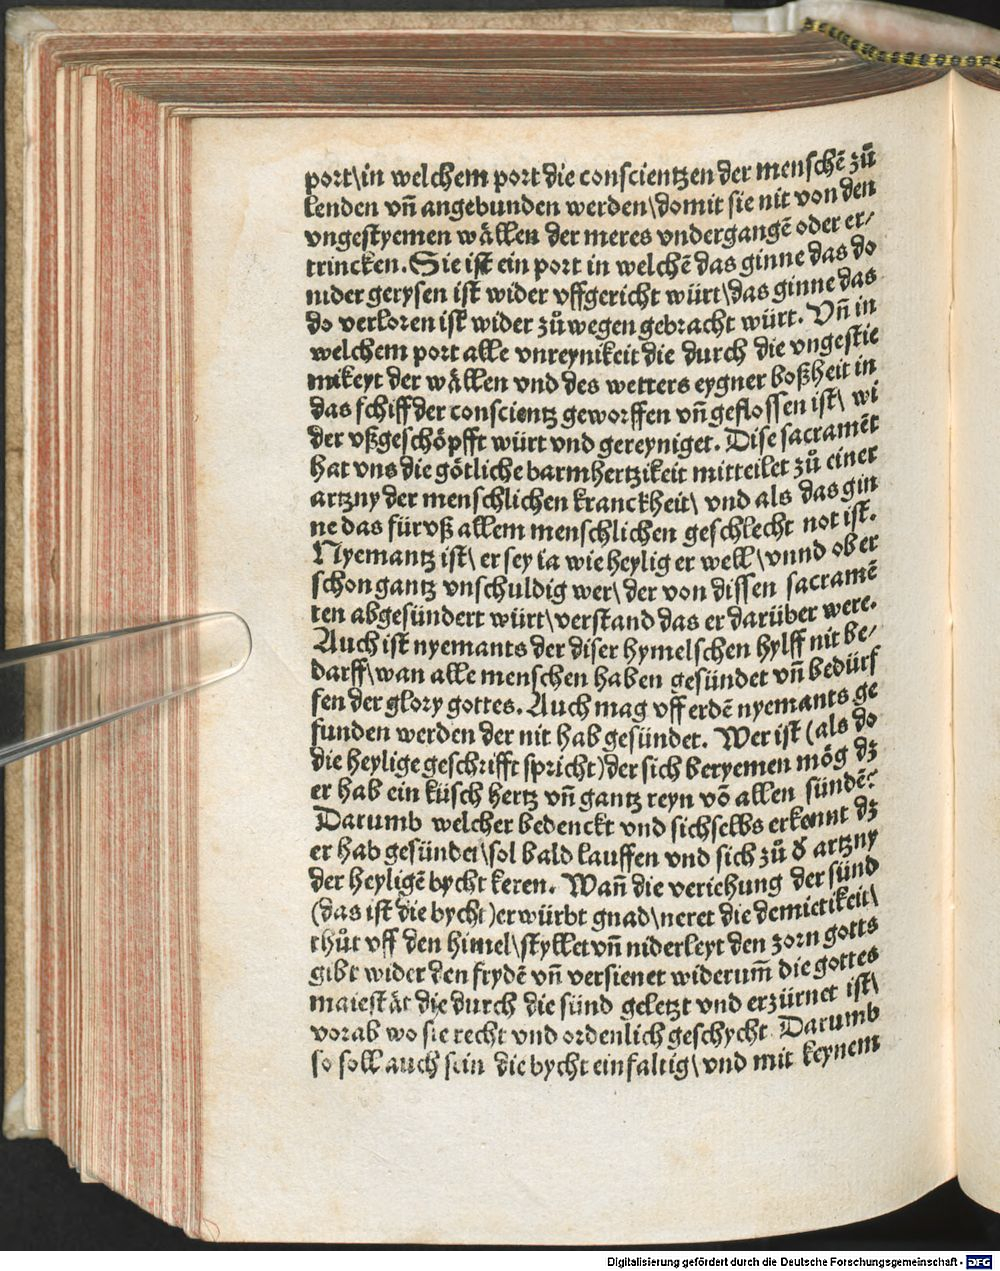 port\in welchem port die conscientzen der menschẽ zů
lenden vñ angebunden werden\domit sie nit von den
vngestyemen wällen der meres vndergangẽ oder er⸗
trincken. Sie ist ein port in welchẽ das ginne das do
nider gerysen ist wider vffgericht würt\das ginne das
do verloren ist wider zůwegen gebracht würt. Vñ in
welchem port alle vnreynikeit die durch die vngestie
mikeyt der wällen vnd des wetters eygner boßheit in
das schiff der conscientz geworffen vñ geflossen ist\ wi
der vßgeschöpfft würt vnd gereyniget. Dise sacramẽt
hat vns die götliche barmhertzikeit mitteilet zů einer
artzny der menschlichen kranckheit\ vnd als das gin
ne das für vß allem menschlichen geschlecht not ist.
Nyemantz ist\ er sey ia wie heylig er well\vnnd ob er
schon gantz vnschuldig wer\der von dissen sacramẽ
ten abgesündert würt\verstand das er darüber were.
Auch ist nyemants der diser hymelschen hylff nit be⸗
darff\wan alle menschen haben gesündet vñ bedürf
fen der glory gottes. Auch mag vff erdẽ nyemants ge
funden werden der nit hab gesündet. Wer ist (als do
die heylige geschrifft spricht)der sich beryemen mög dz
er hab ein küsch hertz vñ gantz reyn võ allen sündẽ?
Darumb welcher bedenckt vnd sichselbs erkennt dz
er hab gesündet\sol bald lauffen vnd sich zů d̕ artzny
der heyligẽ bycht keren. Wañ die veriehung der sünd
(das ist die bycht)erwürbt gnad\neret die demietikeit\
thůt vff den himel\styllet vñ niderleyt den zorn gotts
gibt wider den frydẽ vñ versienet widerum̃ die gottes
maiestät die durch die sünd geletzt vnd erzürnet ist\
vorab wo sie recht vnd ordenlich geschycht Darumb
so soll auch sein die bycht einfaltig\vnd mit keynem
Digitalisierung gefördert durch die Deutsche Forschungsgemeinschaft - DFG